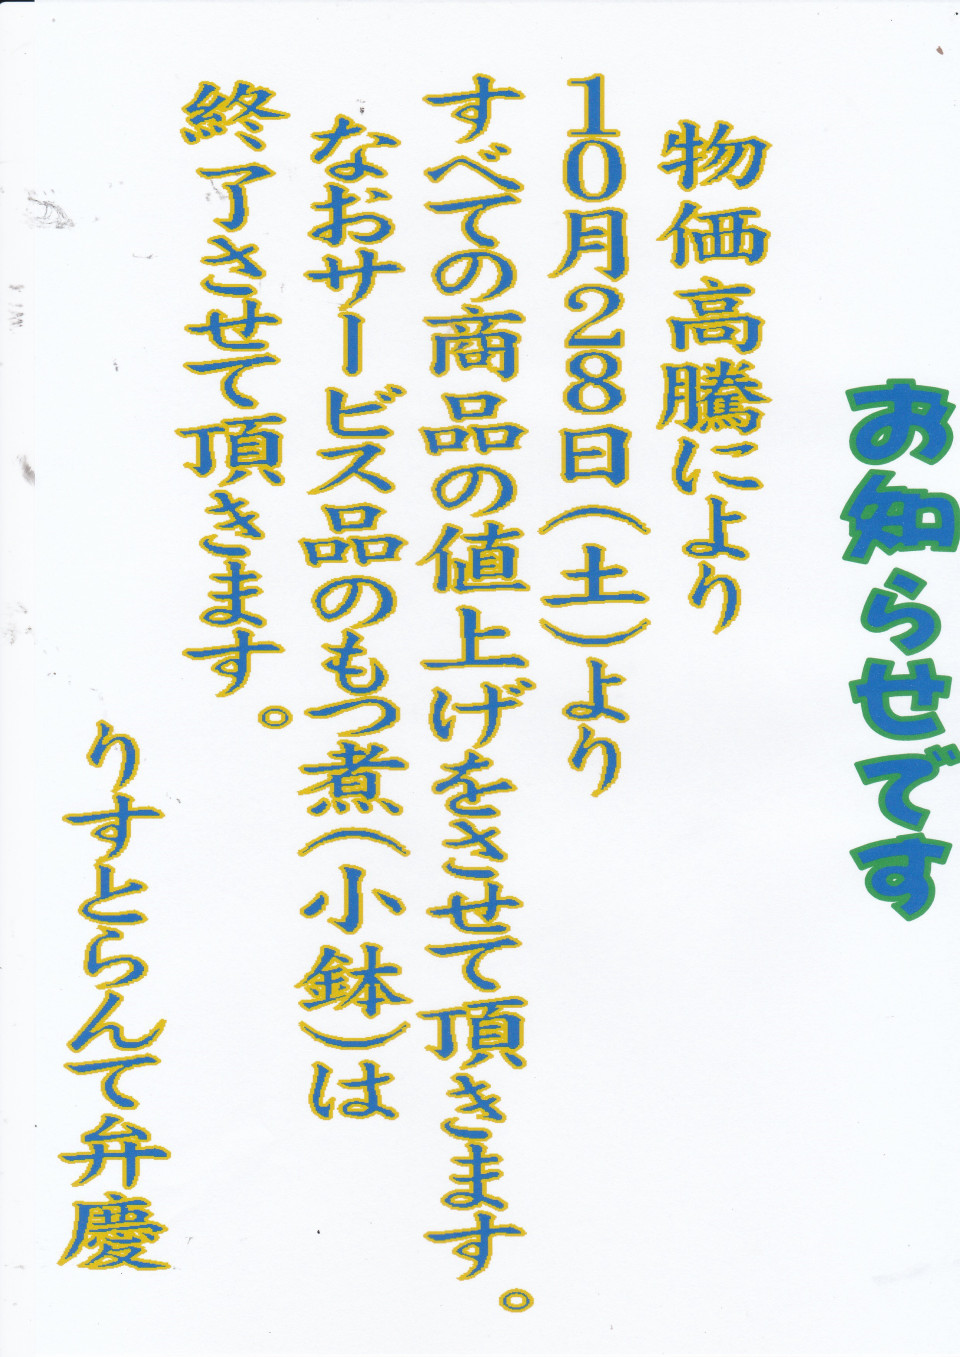 お知らせです
物価高騰により
10月28日(土)より
すべての商品の値上げをさせて頂きます。
なおサービス品のもつ煮(小鉢)は
終了させて頂きます。
りすとらんて弁慶